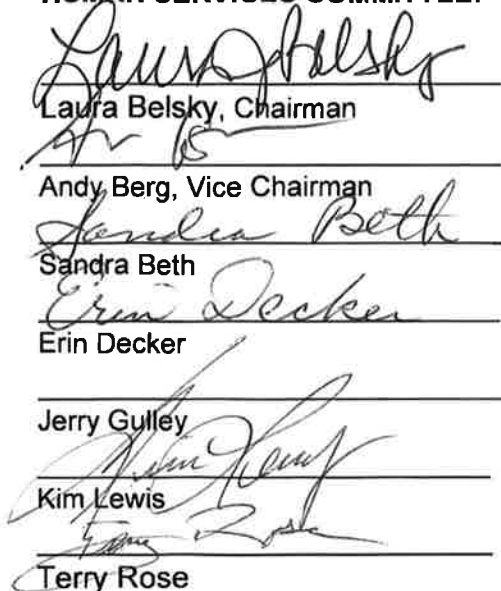 HUMAN SERVICES COMMITTEE:
Laura J Belsky
Laura Belsky, Chairman
Andy Berg, Vice Chairman
Sandra Beth
Sandra Beth
Erin Decker
Erin Decker
Jerry Gulley
Kim Lewis
Kim Lewis
Terry Rose
Terry Rose